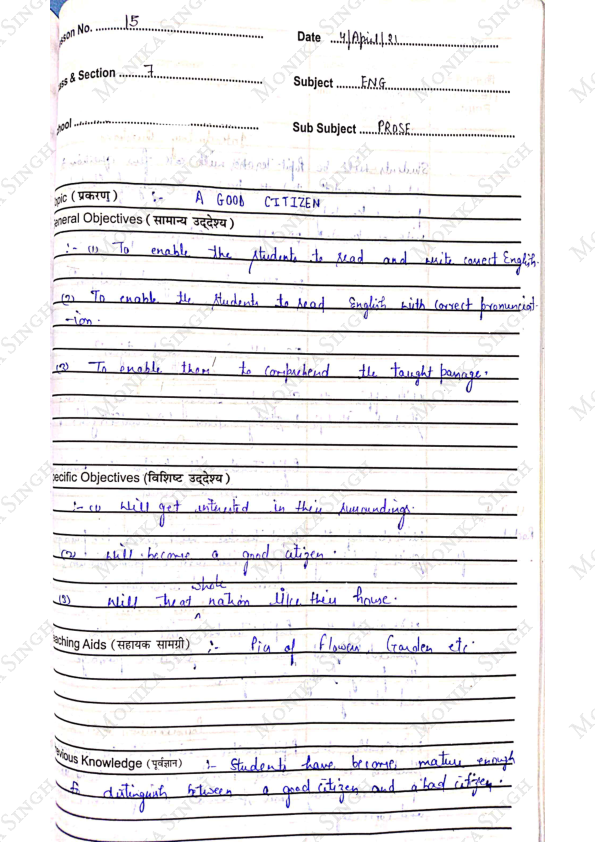 sson No. 15
Date 4/April/21
ss & Section 7
Subject ENG
hool
Sub Subject PROSE
pic (प्रकरण) :- A GOOD CITIZEN
eneral Objectives (सामान्य उद्देश्य)
:- (1) To enable the students to read and write correct English.
(2) To enable the students to read English with correct pronunciat-
-ion.
(3) To enable them to comprehend the taught passage.
ecific Objectives (विशिष्ट उद्देश्य)
:- (1) Will get interested in their surroundings.
(2) Will become a good citizen.
whole
(3) Will treat ^ nation like their house.
aching Aids (सहायक सामग्री) :- Pics of Flowers, Garden etc.
evious Knowledge (पूर्वज्ञान) :- Students have become mature enough
to distinguish between a good citizen and a bad citizen.
MONIKA SINGH